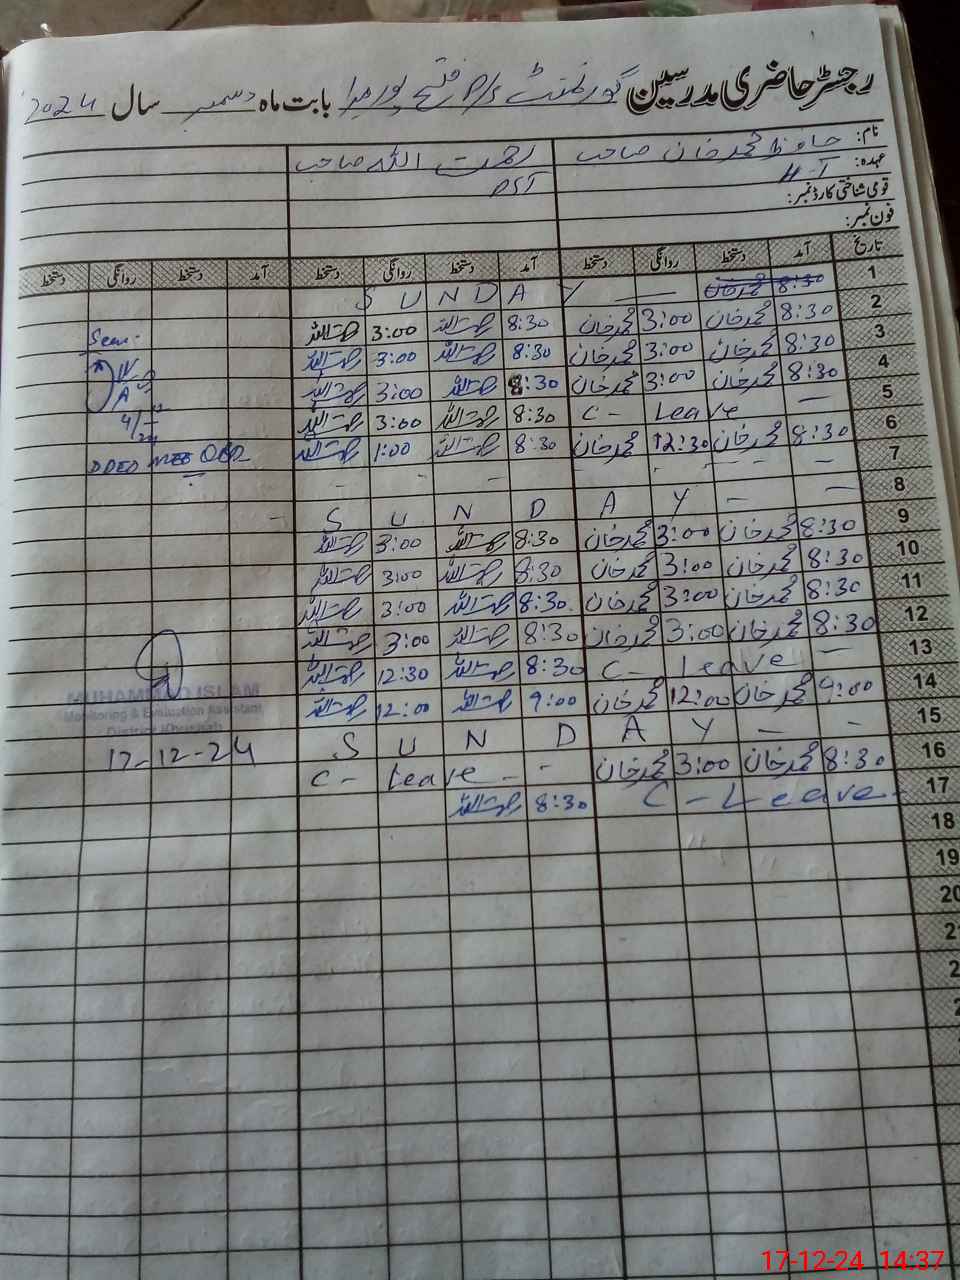 رجسٹر حاضری مدرسین گورنمنٹ P/S فتح پور بابت ماہ دسمبر سال 2024
نام: حافظ محمد خان صاحب رحمت اللہ صاحب
عہدہ: H-T PST
قومی شناختی کارڈ نمبر:
فون نمبر:
تاریخ آمد دستخط روانگی دستخط آمد دستخط روانگی دستخط آمد دستخط روانگی دستخط
1 8:30 محمد خان S U N D A Y —
2 8:30 محمد خان 3:00 محمد خان 8:30 رحمت اللہ 3:00 رحمت اللہ
3 8:30 محمد خان 3:00 محمد خان 8:30 رحمت اللہ 3:00 رحمت اللہ Seen.
4 8:30 محمد خان 3:00 محمد خان 8:30 رحمت اللہ 3:00 رحمت اللہ
5 C- Leave — 8:30 رحمت اللہ 3:00 رحمت اللہ
6 8:30 محمد خان 12:30 محمد خان 8:30 رحمت اللہ 1:00 رحمت اللہ
7 - - - - - - - -
8 S U N D A Y — —
9 8:30 محمد خان 3:00 محمد خان 8:30 رحمت اللہ 3:00 رحمت اللہ
10 8:30 محمد خان 3:00 محمد خان 8:30 رحمت اللہ 3:00 رحمت اللہ
11 8:30 محمد خان 3:00 محمد خان 8:30 رحمت اللہ 3:00 رحمت اللہ
12 8:30 محمد خان 3:00 محمد خان 8:30 رحمت اللہ 3:00 رحمت اللہ
13 C- Leave — 8:30 رحمت اللہ 12:30 رحمت اللہ
14 9:00 محمد خان 12:00 محمد خان 9:00 رحمت اللہ 12:00 رحمت اللہ
MUHAMMAD ISLAM
Monitoring & Evaluation Assistant
District Khushab
12-12-24
15 S U N D A Y — —
16 8:30 محمد خان 3:00 محمد خان C- Leave - -
17 C - Leave 8:30 رحمت اللہ
18
19
20
17-12-24 14:37